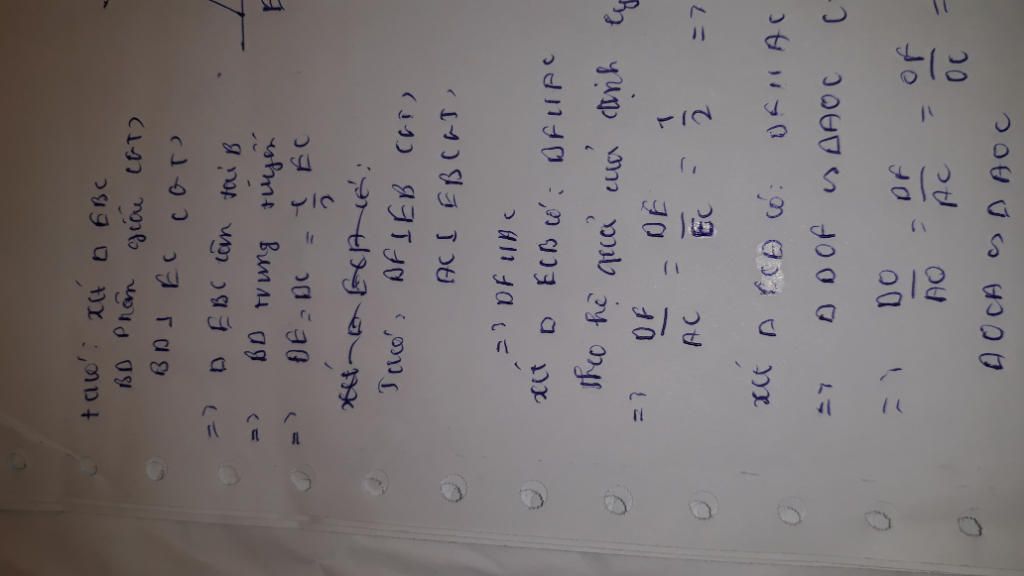 taco': xét Δ EBC
BD phân giác CGT)
BD ⊥ EC CGT)
=> Δ EBC cân tại B
=> BD trung tuyến
=> DE = DC = 1/2 EC
Taco': DF ⊥ EB CGT)
AC ⊥ EBCGT)
=> DF // AC
xét Δ ECB có: DF // AC
theo hệ quả của định
=> DF/AC = DE/EC = 1/2 =>
xét Δ có: DF // AC
=> Δ DOF ∽ ΔAOC
=> DO/AO = DF/AC = OF/OC =
ΔOCA ∽ Δ AOC